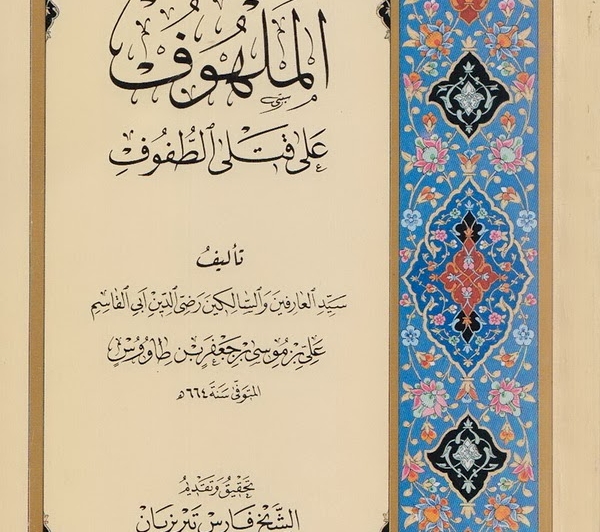 المَلهُوف
عَلى قَتلى الطُّفُوفِ
تأليفُ
سَيِّدِ العارِفينَ وَالسّالِكينَ رَضِيِّ الدّينِ أبي القاسِمِ
عَليِّ بنِ مُوسىٰ بنِ جَعفَرِ بنِ طاوُوسٍ
المتوَفّىٰ سَنَةَ ٦٦٤ه
تحقيقُ وَتَقديمُ
الشّيخ فارِس تَبريزيان